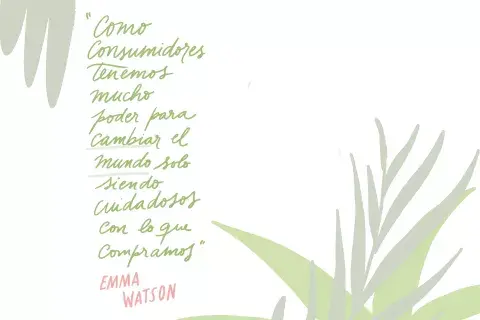 "Como
Consumidores
tenemos
mucho
poder para
cambiar el
mundo solo
siendo
cuidadosos
con lo que
compramos"
EMMA
WATSON